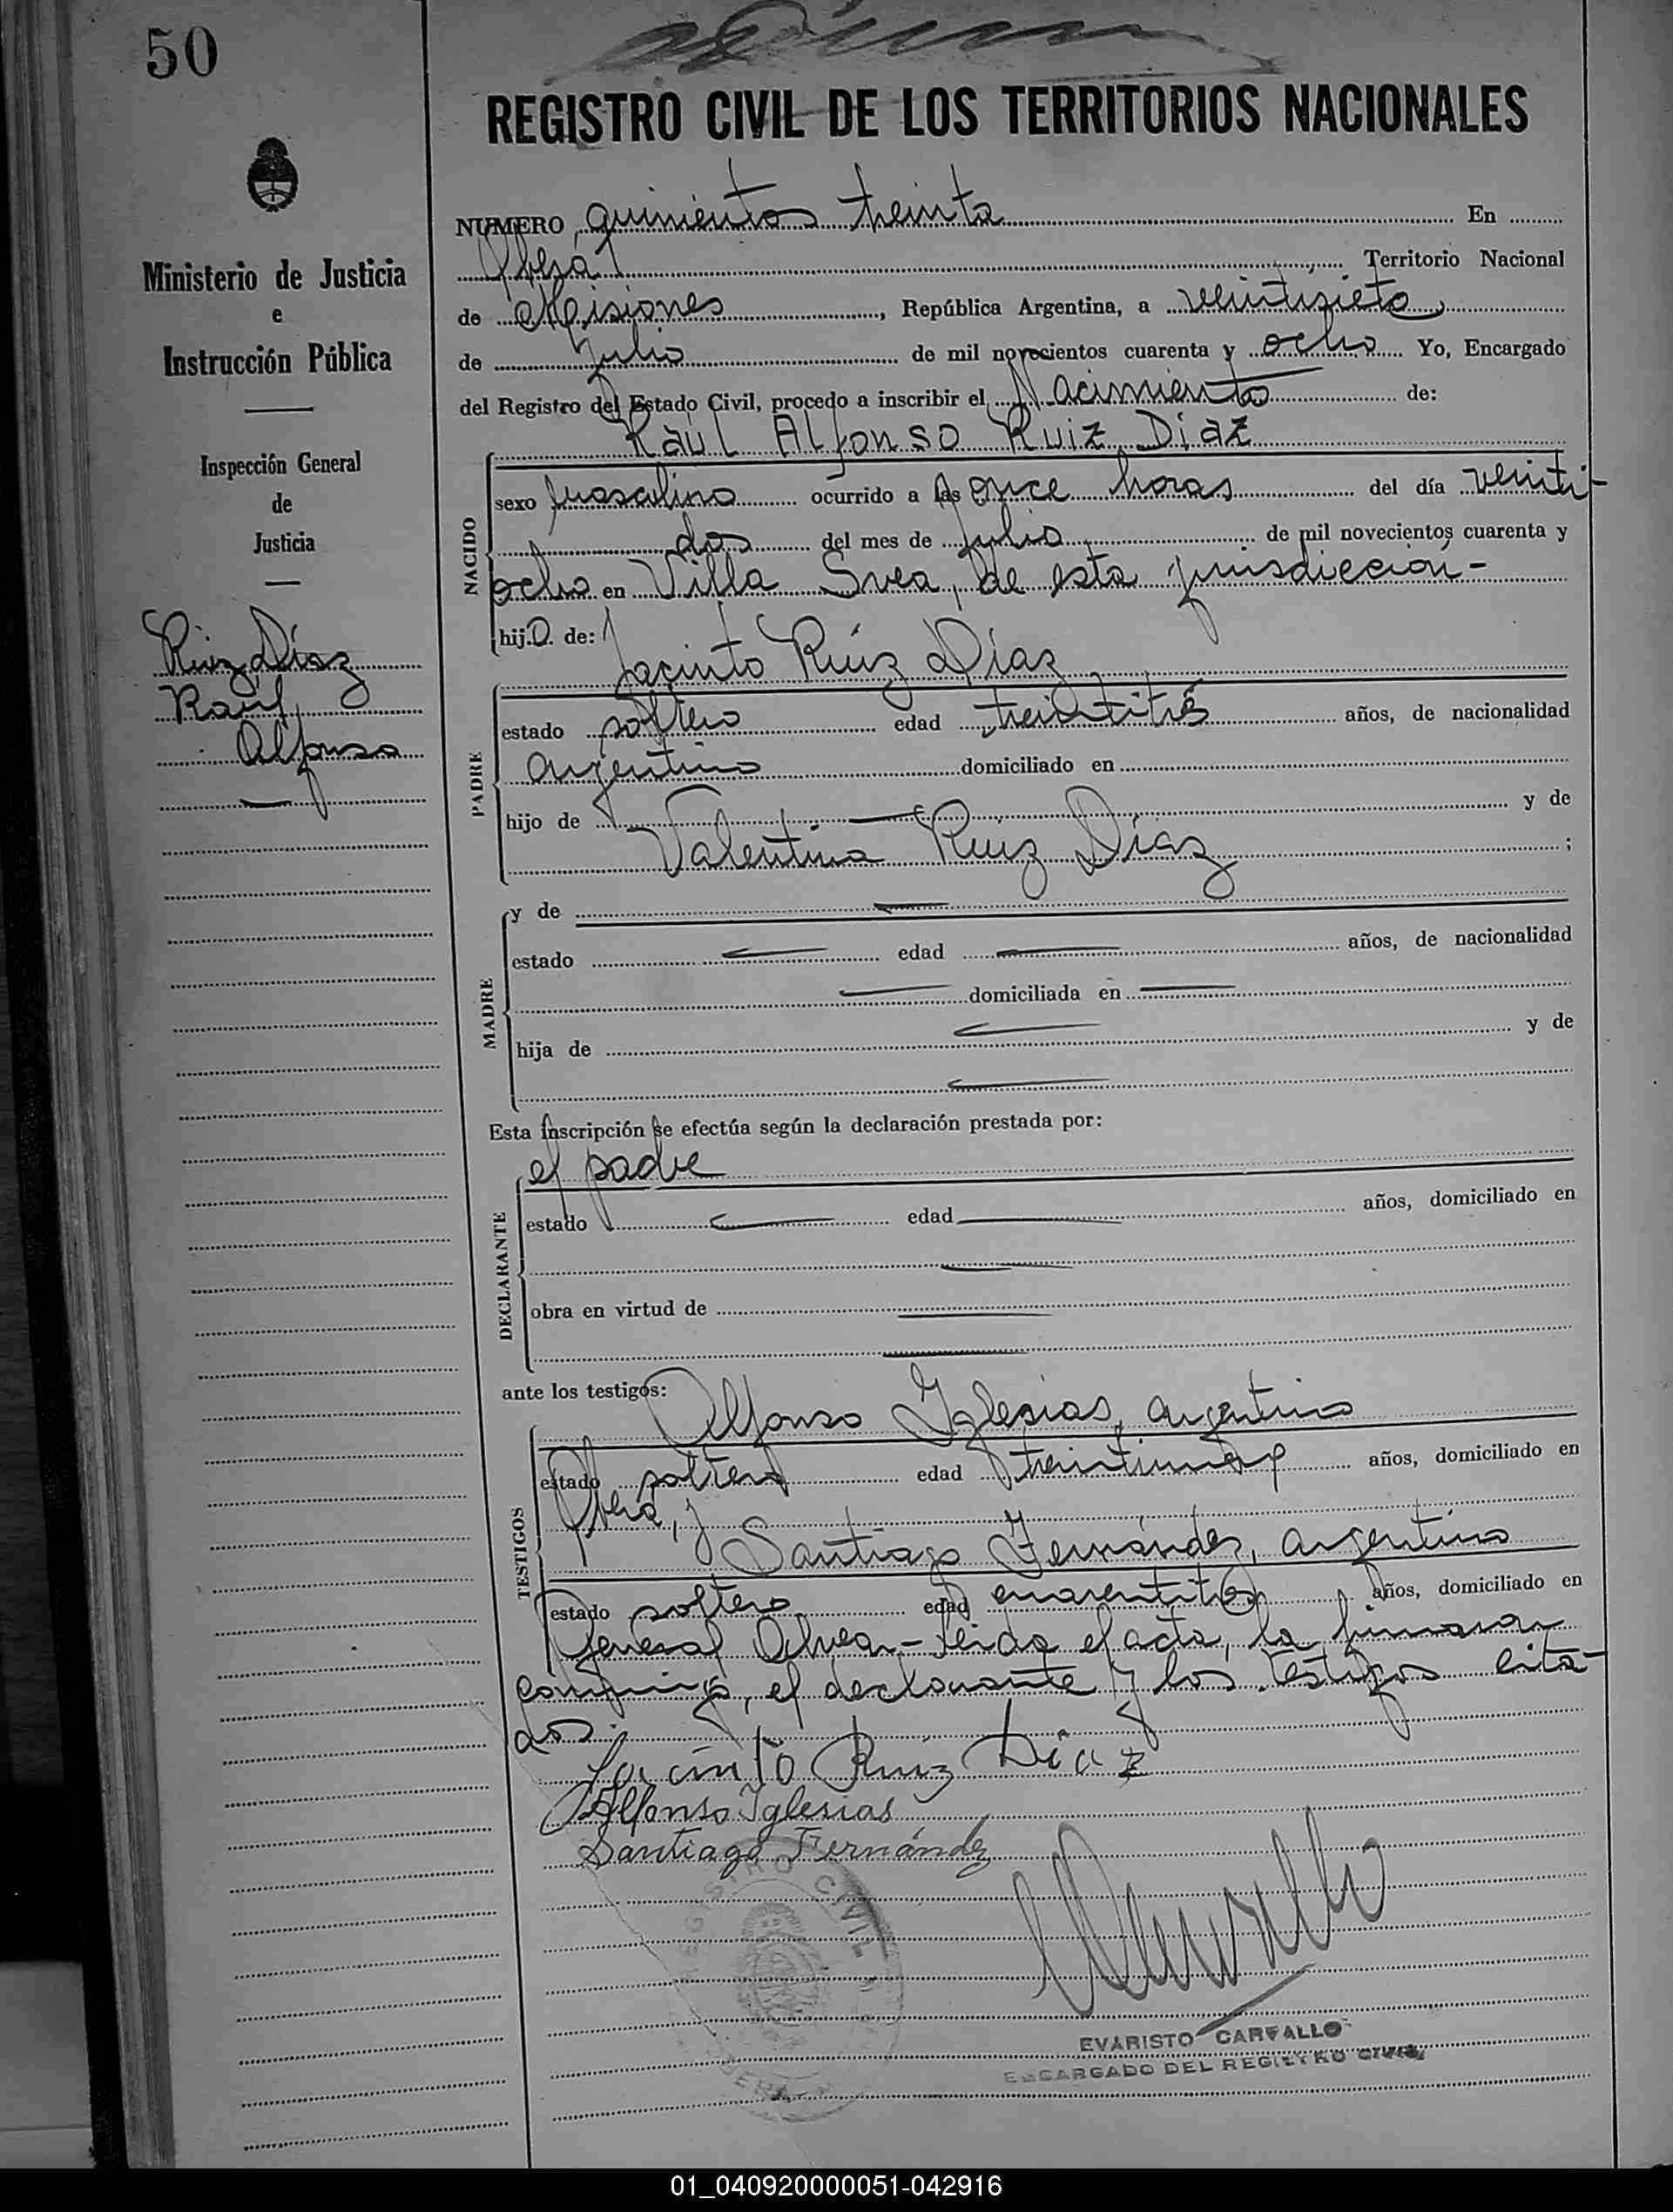 50
REGISTRO CIVIL DE LOS TERRITORIOS NACIONALES
Ministerio de Justicia
e
Instrucción Pública
Inspección General
de
Justicia
Ruiz Díaz
Raúl
Alfonso
NUMERO quinientos treinta En
Oberá Territorio Nacional
de Misiones, República Argentina, a veintisiete
de Julio de mil novecientos cuarenta y ocho Yo, Encargado
del Registro del Estado Civil, procedo a inscribir el Nacimiento de:
Raúl Alfonso Ruiz Díaz
NACIDO
sexo masculino ocurrido a las once horas del día veinti-
dos del mes de julio de mil novecientos cuarenta y
ocho en Villa Svea, de esta jurisdiccion -
hijo. de:
Jacinto Ruiz Díaz
PADRE
estado soltero edad treintitrés años, de nacionalidad
argentino domiciliado en
hijo de y de
Valentina Ruiz Díaz ;
MADRE
y de
estado edad años, de nacionalidad
domiciliada en
hija de y de
Esta inscripción se efectúa según la declaración prestada por:
el padre
DECLARANTE
estado edad años, domiciliado en
obra en virtud de
ante los testigos:
Alfonso Iglesias, argentino
TESTIGOS
estado soltero edad años, domiciliado en
Oberá, y
Santiago Fernández, argentino
estado soltero edad cuarentitrés años, domiciliado en
General Alvear - Leida el acta, la firmaron
conmigo, el declarante y los testigos cita-
dos.
Jacinto Ruiz Diaz
Alfonso Iglesias
Santiago Fernández
EVARISTO CARVALLO
ENCARGADO DEL REGISTRO CIVIL
01_040920000051-042916